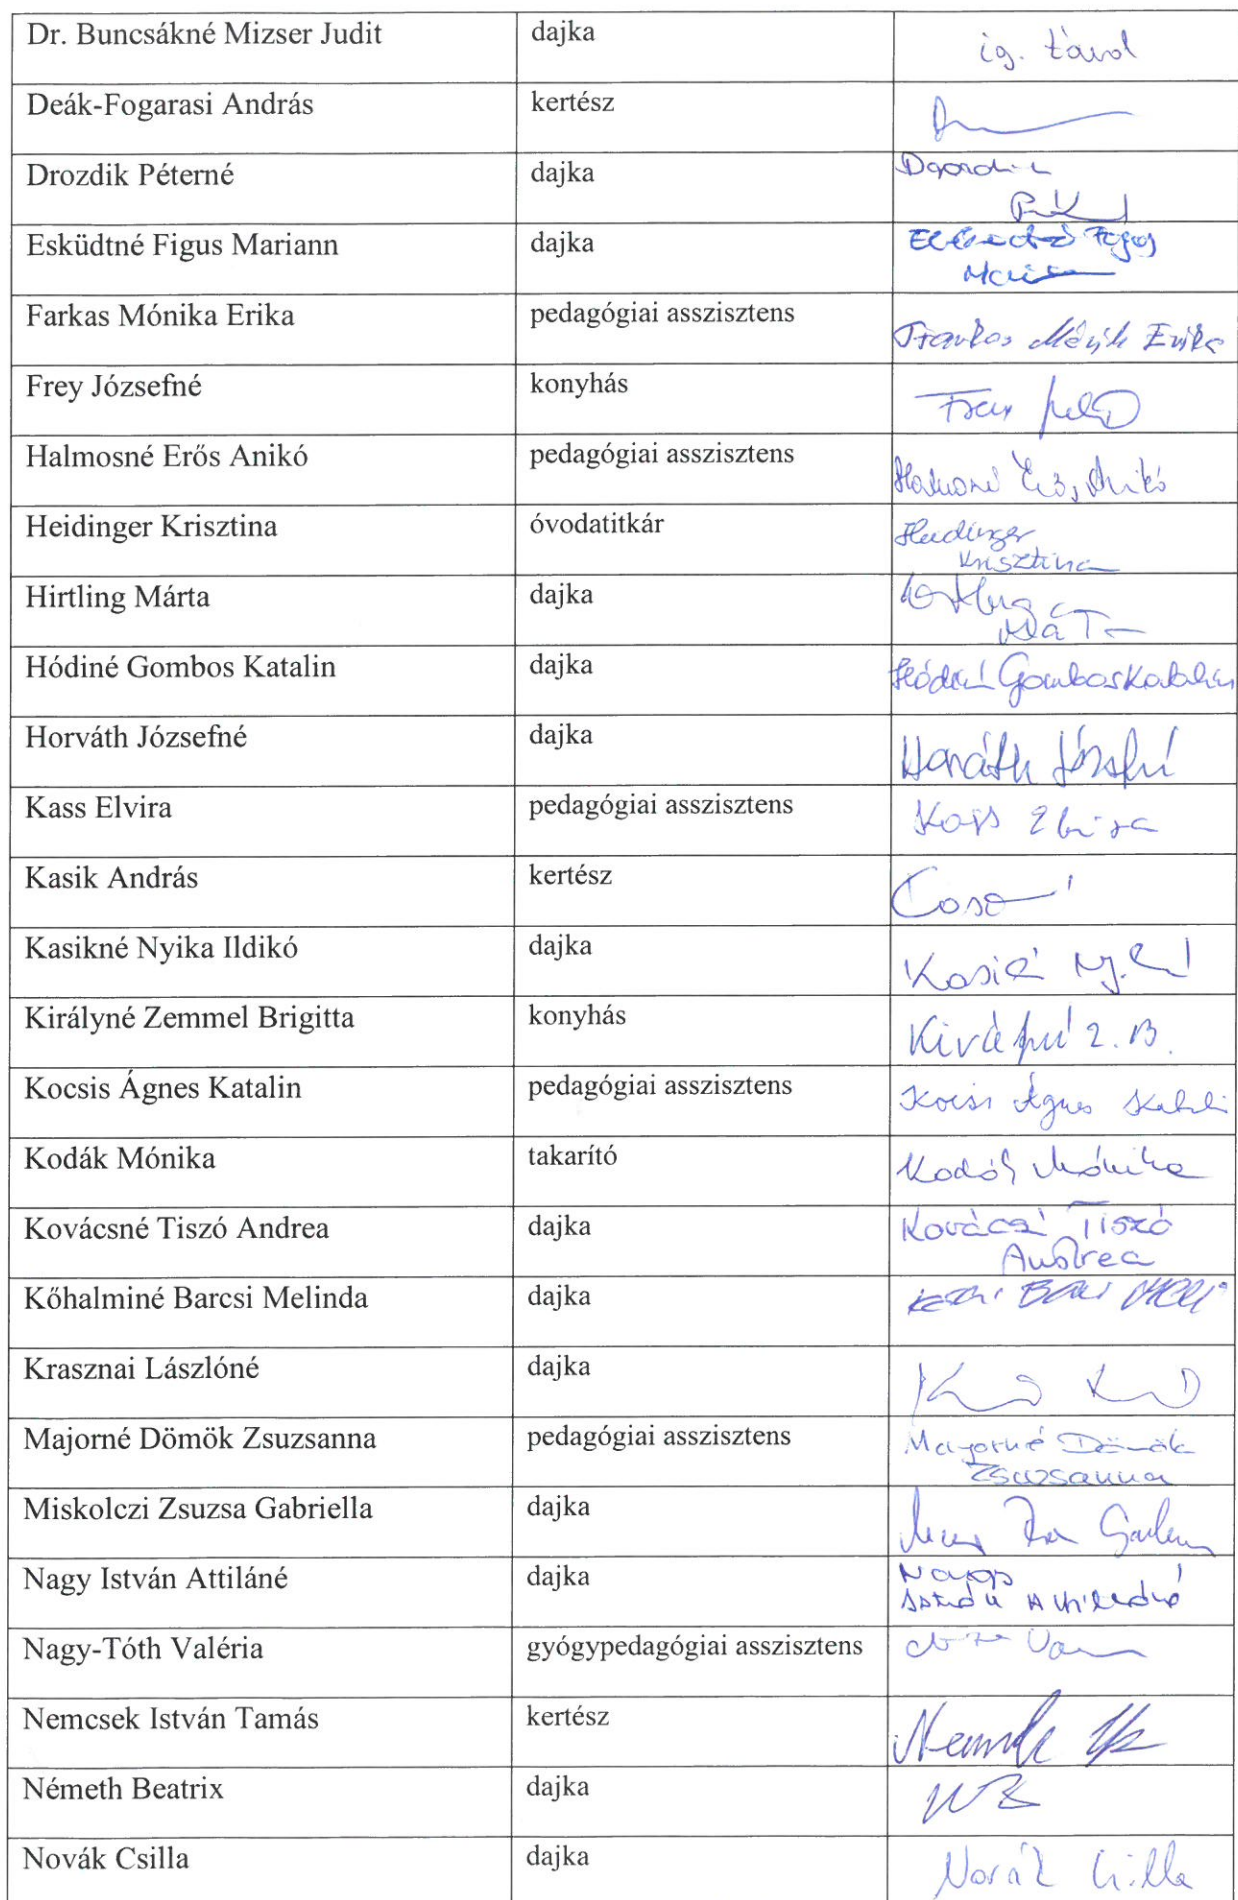 Dr. Buncsákné Mizser Judit dajka ig. távol
Deák-Fogarasi András kertész
Drozdik Péterné dajka
Esküdtné Figus Mariann dajka
Farkas Mónika Erika pedagógiai asszisztens Farkas Mónik Erika
Frey Józsefné konyhás Frey
Halmosné Erős Anikó pedagógiai asszisztens Halmosné Erős Anikó
Heidinger Krisztina óvodatitkár Heidinger
Krisztina
Hirtling Márta dajka
Hódiné Gombos Katalin dajka Hódiné Gombos Katalin
Horváth Józsefné dajka Horváth Józsefné
Kass Elvira pedagógiai asszisztens Kass Elvira
Kasik András kertész
Kasikné Nyika Ildikó dajka
Királyné Zemmel Brigitta konyhás Királyné Z. B.
Kocsis Ágnes Katalin pedagógiai asszisztens Kocsis Ágnes Katalin
Kodák Mónika takarító Kodák Mónika
Kovácsné Tiszó Andrea dajka Kovácsné Tiszó
Andrea
Kőhalminé Barcsi Melinda dajka
Krasznai Lászlóné dajka
Majorné Dömök Zsuzsanna pedagógiai asszisztens Majorné Dömök
Zsuzsanna
Miskolczi Zsuzsa Gabriella dajka
Nagy István Attiláné dajka Nagy
István Attiláné
Nagy-Tóth Valéria gyógypedagógiai asszisztens
Nemcsek István Tamás kertész
Németh Beatrix dajka NB
Novák Csilla dajka Novák Csilla